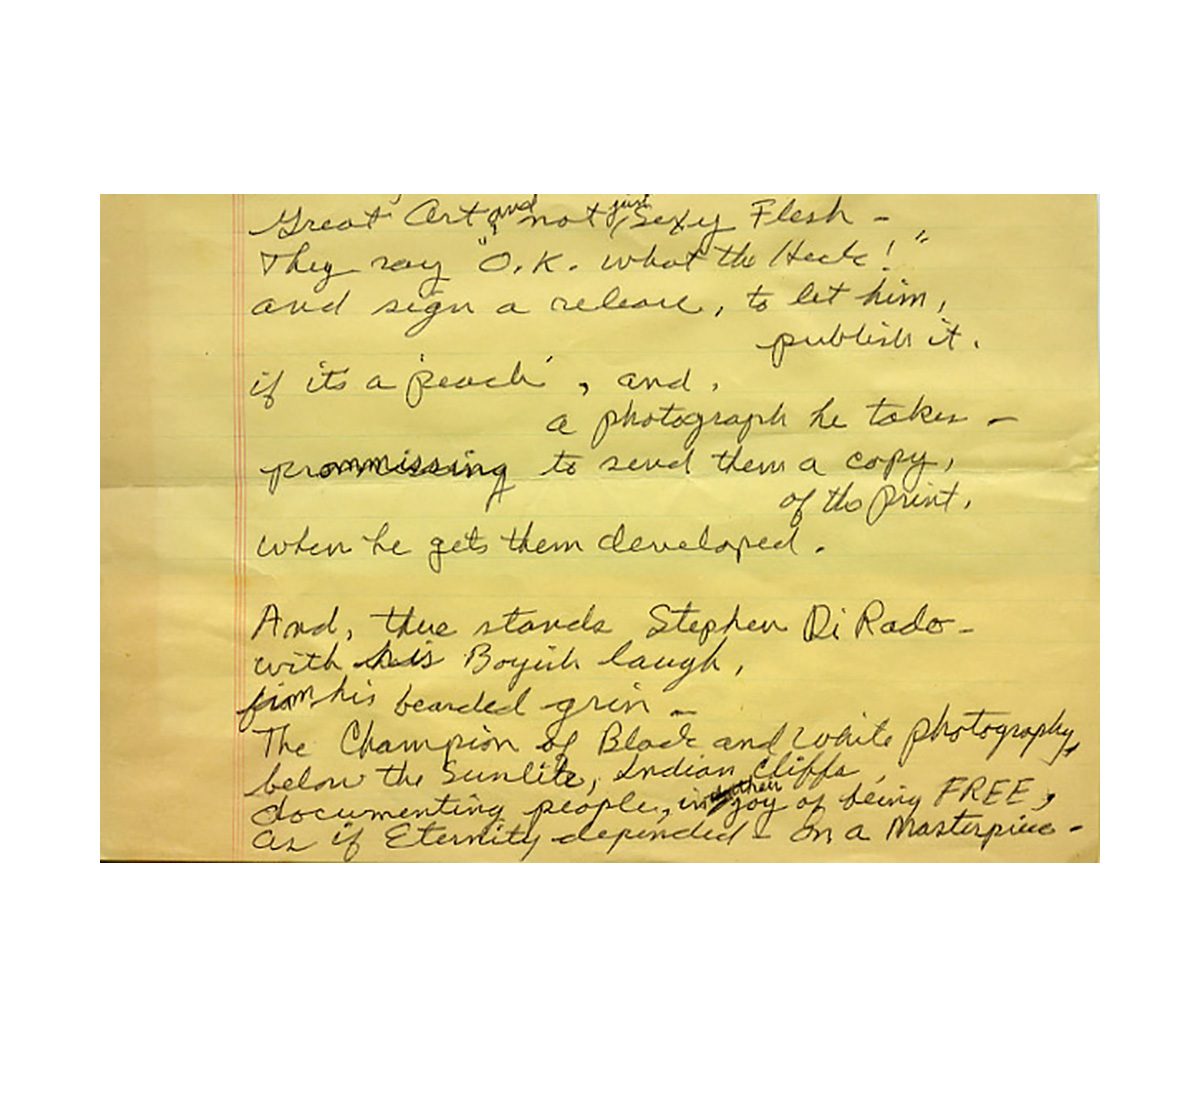 Great Art, and not just Sexy Flesh -
They say "O.K. what the Heck!"
and sign a release, to let him,
publish it.
if its a 'peach', and,
a photograph he takes -
prommissing to send them a copy,
of the print,
when he gets them developed.
And, there stands Stephen DiRado -
with his Boyish laugh,
from his bearded grin -
The Champion of Black and White photography,
below the Sunlite, Indian Cliffs,
documenting people, in their joy of being FREE,
as if Eternity depended - On a Masterpiece -